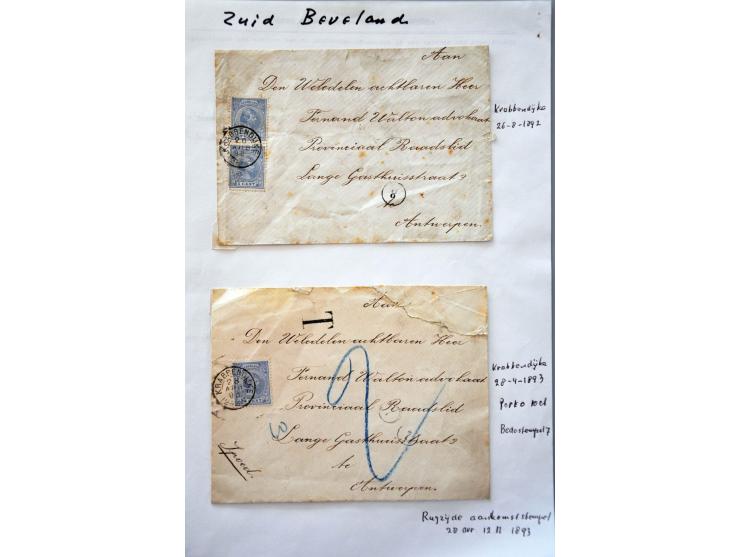 Zuid Beveland
Aan
Den Weledelen achtbaren Heer
Fernand Walton advokaat
Provinciaal Raadslid
Lange Gasthuisstraat 9
te
Antwerpen.
KRABBENDIJKE
5 CENT
9
Krabbendijke
26-8-1892
Aan
T
Den Weledelen achtbaren Heer
Fernand Walton advokaat
Provinciaal Raadslid
Lange Gasthuisstraat 9
te
Antwerpen.
KRABBENDIJKE
28
2
Spoed.
Krabbendijke
28-4-1893
Porto
Bodestempel 7
Rugzijde aankomststempel
1893